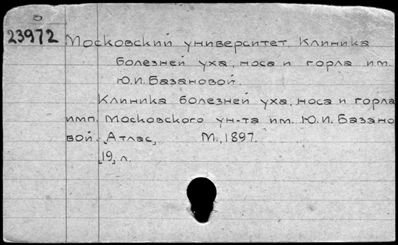 23972 Московский университет. Клиника
болезней уха, носа и горла им.
Ю.И. Базановой.
Клиника болезней уха, носа и горла
имп. Московского ун-та им. Ю.И. Базано
вой. Атлас, М., 1897.
19 л.